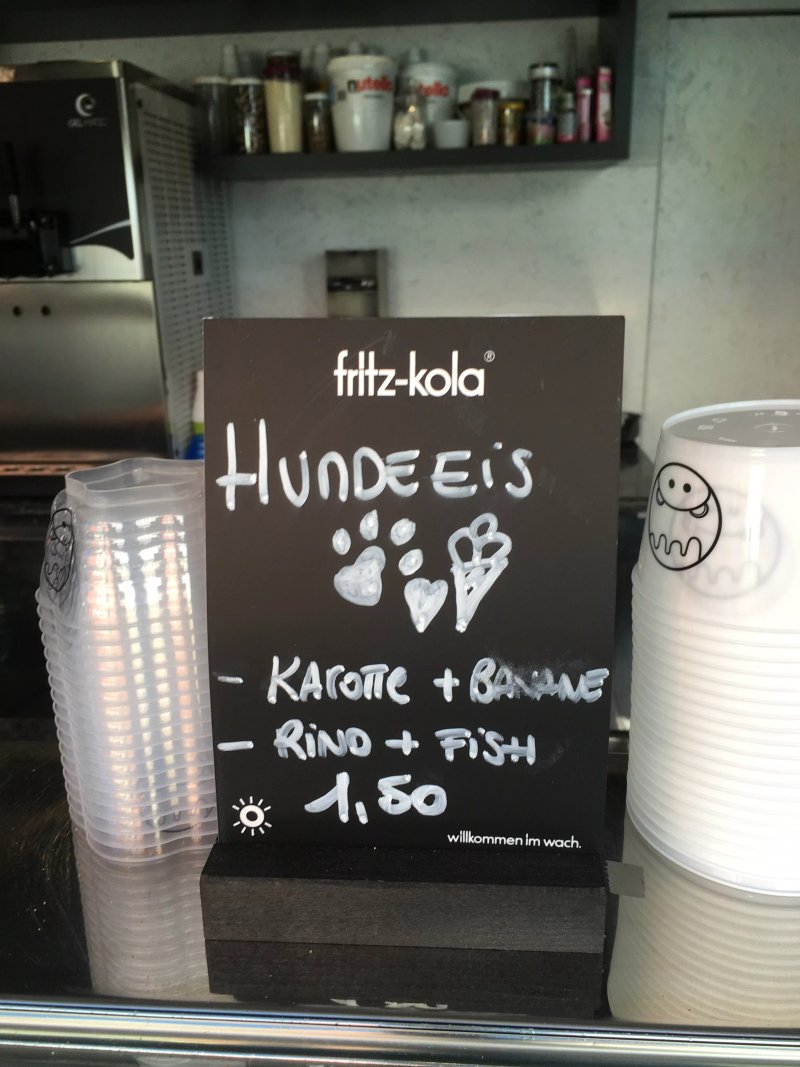 GELMATIC
nutella
nutella
fritz-kola®
HUNDEEiS
- KAROTTE + BANANE
- RiND + FiSH
1,50
willkommen im wach.